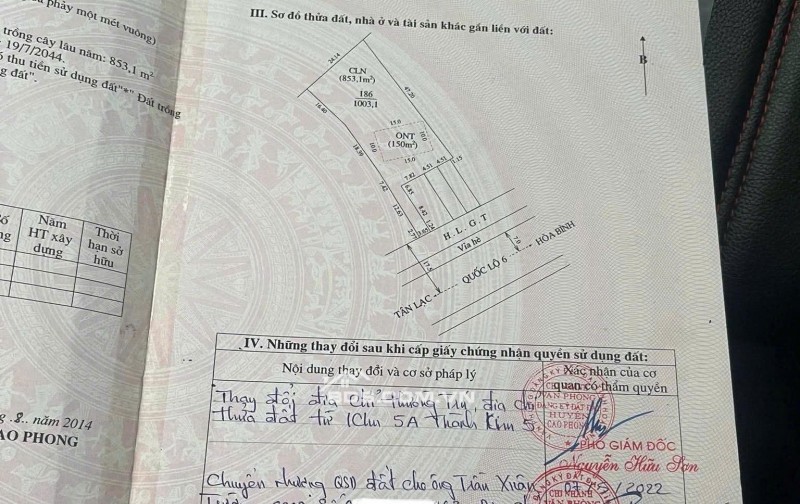 phảy một mét vuông)
trồng cây lâu năm: 853,1 m²
19/7/2044.
thu tiền sử dụng đất"*" Đất trồng
đất".
Năm
HT xây
dựng
Thời
hạn sở
hữu
8.. năm 2014
AO PHONG
III. Sơ đồ thửa đất, nhà ở và tài sản khác gắn liền với đất:
B
24.14
CLN
(853,1m²)
47.20
186
1003,1
16.40
15.0
10.0
ONT
(150m²)
10.0
15.0
18.39
7.42
12.63
7.82
4.51
4.51
5.15
6.85
8.42
H. L. G. T
Vỉa hè
7.0
17.5
TÂN LẠC
QUỐC LỘ 6
HÒA BÌNH
IV. Những thay đổi sau khi cấp giấy chứng nhận quyền sử dụng đất:
Nội dung thay đổi và cơ sở pháp lý
Xác nhận của cơ
quan có thẩm quyền
Thay đổi địa chỉ thường trú, địa chỉ
thửa đất từ Khu 5A thành Khu 5
VĂN PHÒNG
HUYỆN
CAO PHONG
PHÓ GIÁM ĐỐC
Nguyễn Hữu Sơn
Chuyển nhượng QSD đất cho ông Trần Xuân
2022
CHI NHÁNH
BDS.COM.VN